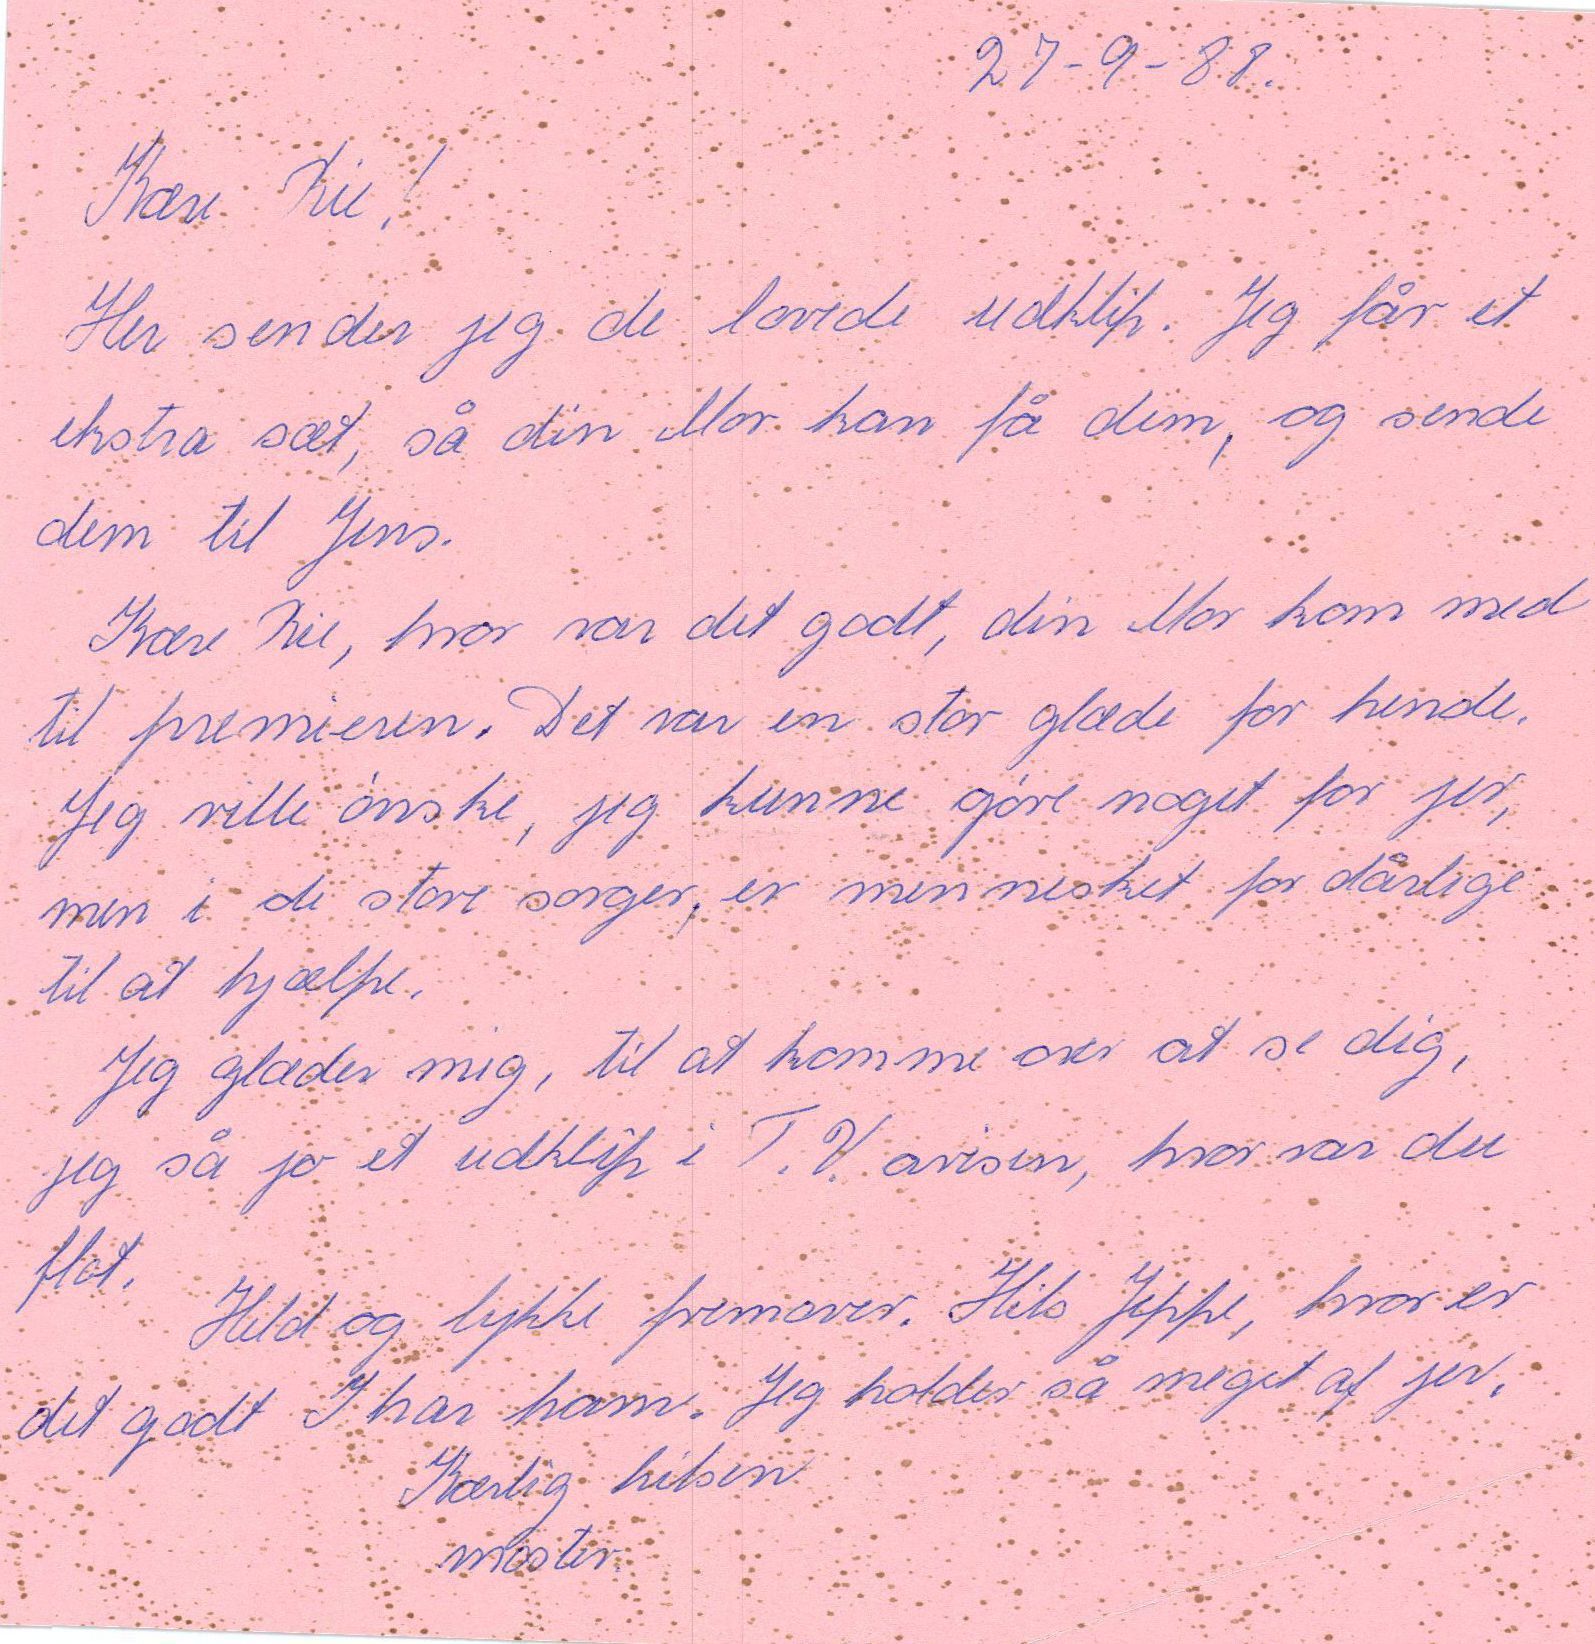 27-9-88.
Kære Rie!
Her sender jeg de lovede udklip. Jeg får et
ekstra sæt, så din Mor kan få dem, og sende
dem til Jens.
Kære Rie, hvor var det godt, din Mor kom med
til premieren. Det var en stor glæde for hende.
Jeg ville ønske, jeg kunne gøre noget for jer,
men i de store sorger, er mennesket for dårlige
til at hjælpe.
Jeg glæder mig, til at komme over at se dig,
jeg så jo et udklip i T.V. avisen, hvor var du
flot.
Held og lykke fremover. Hils Jeppe, hvor er
det godt I har ham. Jeg holder så meget af jer.
Kærlig hilsen
moster.